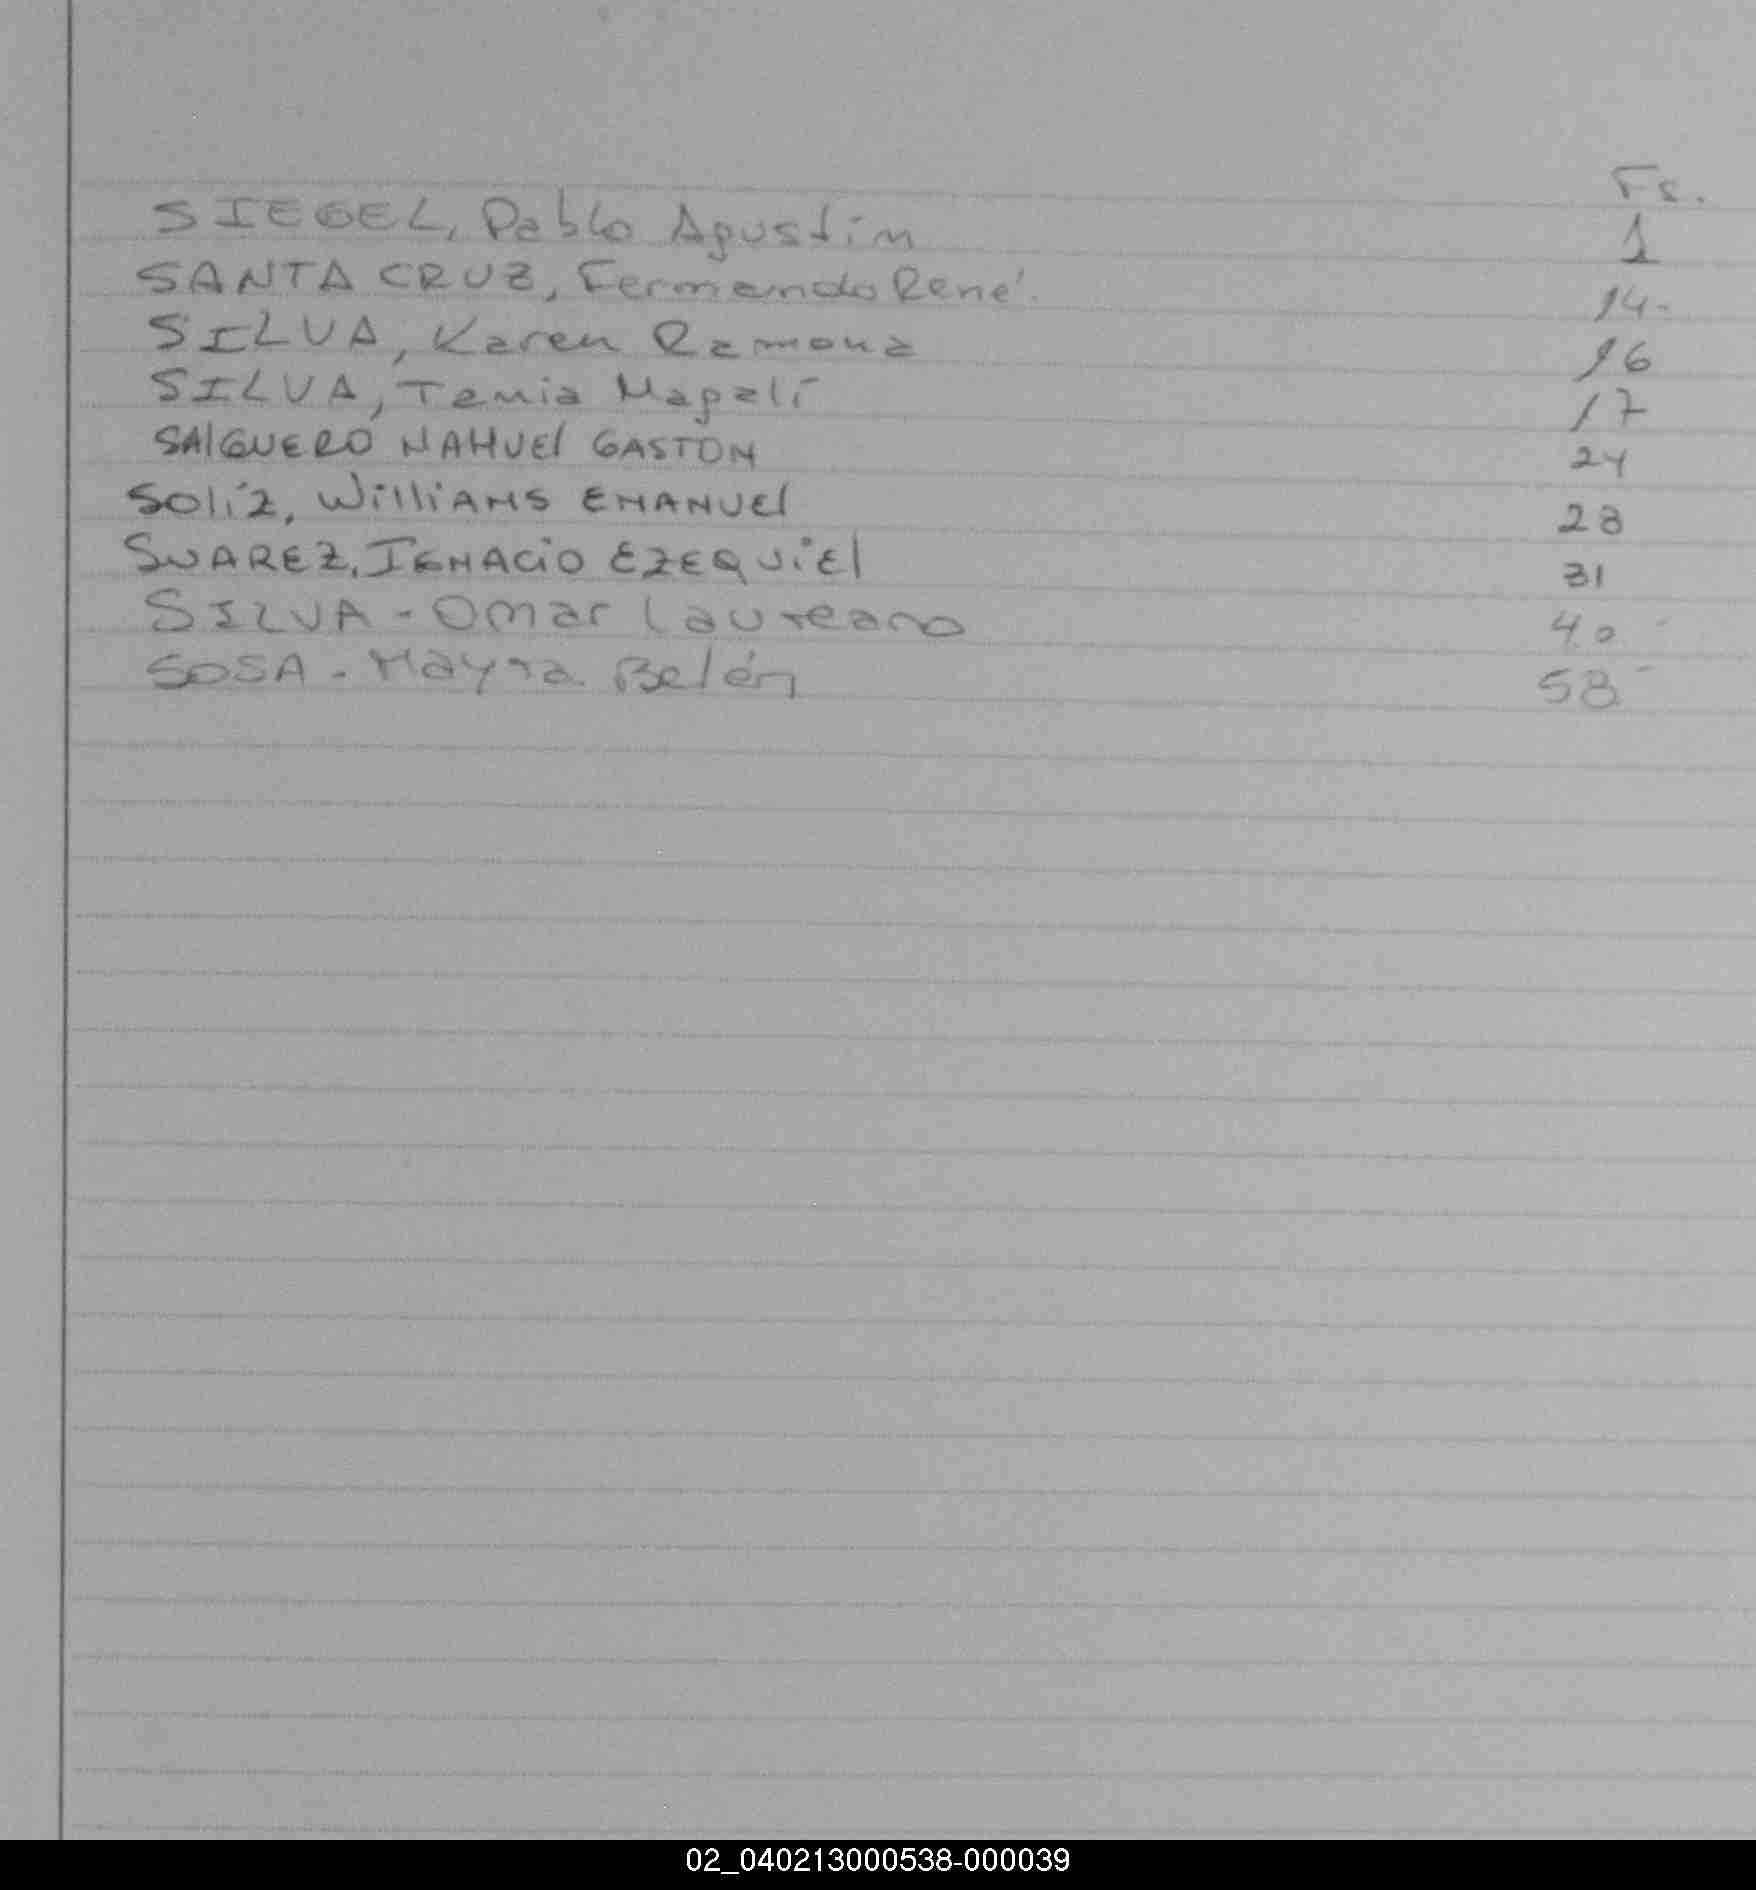 Fs.
SIEGEL, Pablo Agustin 1
SANTA CRUZ, Fernando René. 14-
SILVA, Karen Ramona 16
SILVA, Tania Magalí 17
SAlGUERO NAHUEl GASTON 24
SOliz, WilliAMS EMANUEl 28
SUAREZ, IGNACIO EZEQUiEl 31
SILVA - Omar Laureano 40
SOSA - Mayra Belén 58
02_040213000538-000039